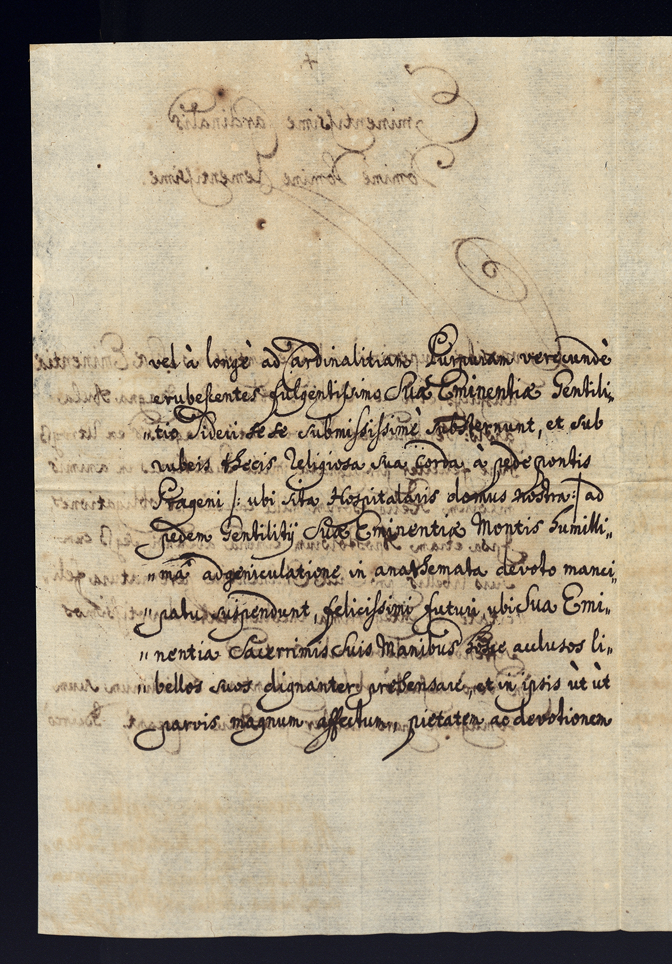 vel à longè ad Cardinalitiam Purpuram verecundè
erubescentes fulgentissimo Suæ Eminentiæ Gentili„
„tio Sideri se se submississimè substernunt, et sub
rubeis thecis Religiosa sua corda à pede pontis
Prageni /: ubi sita Hospitalaris domus nostra :/ ad
pedem Gentilitij Suæ Eminentiæ Montis humilli„
„mâ adgeniculatione in anathemata devoto manci„
„patu suspendunt, felicissimi futuri, ubi Sua Emi„
„nentia Sacerrimis Suis Manibus hosce acclusos li„
„bellos suos dignanter prehensare, et in ipsis ùt ùt
parvis magnum affectum, pietatem ac devotionem